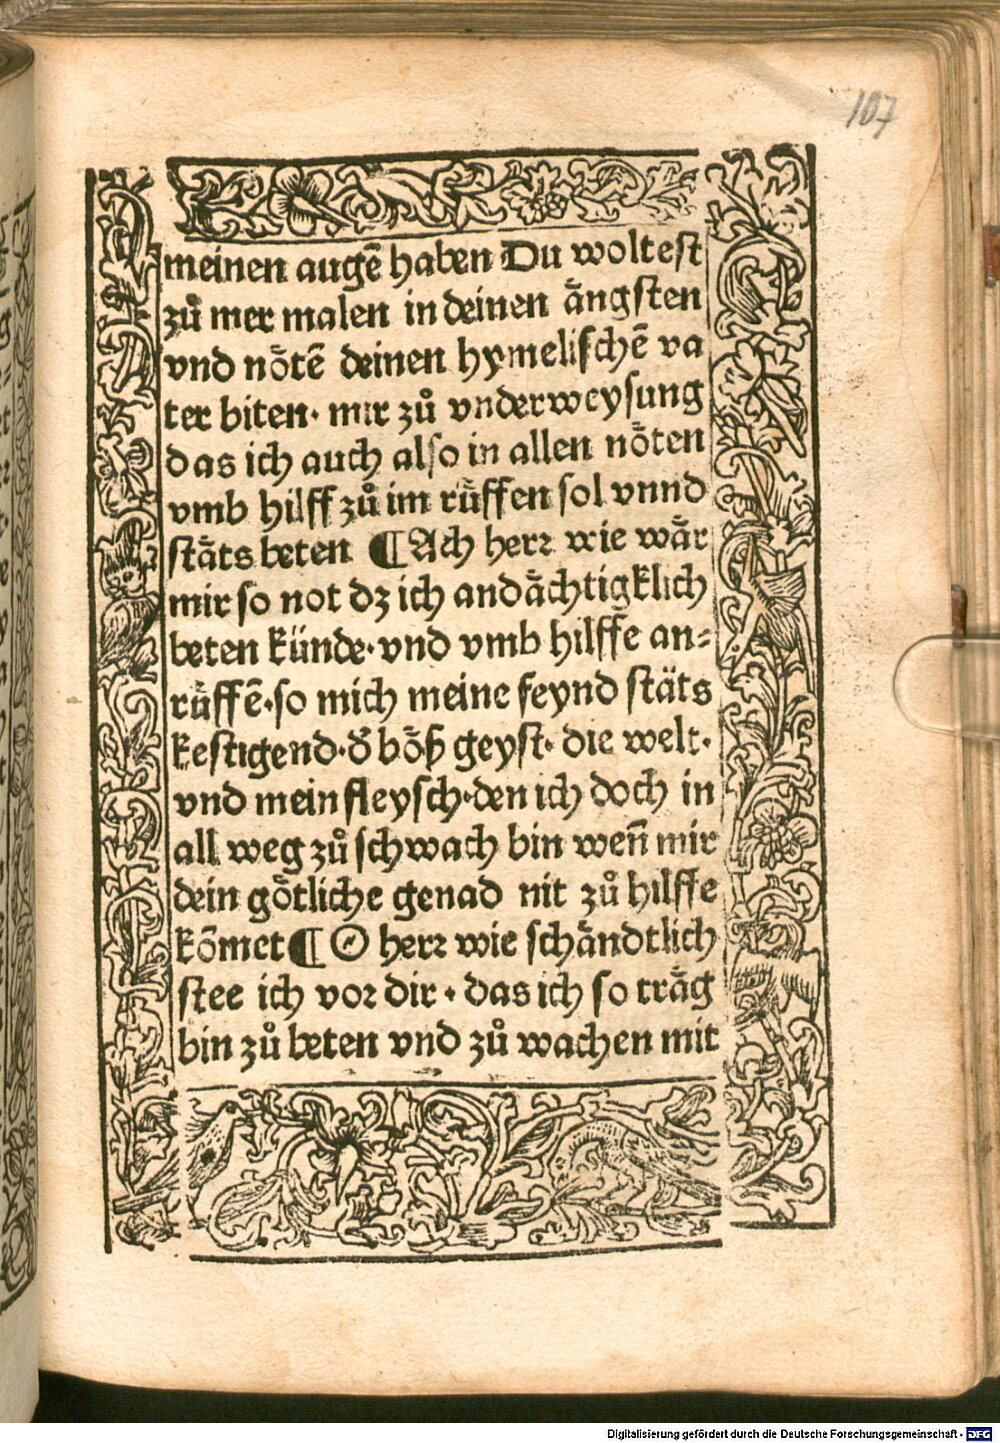 107
meinen augē haben Du woltest
zů mer malen in deinen aͤngsten
vnd noͤtē deinen hymelischē va
ter biten· mir zů vnderweysung
das ich auch also in allen noͤten
vmb hilff zů im ruͤffen sol vnnd
staͤts beten ¶ Ach herꝛ wie waͤr
mir so not dz ich andaͤchtigklich
beten künde·vnd vmb hilffe an⸗
ruͤffē·so mich meine feynd staͤts
kestigend·d̓ boͤß geyst· die welt·
vnd mein fleysch·den ich doch in
all weg zů schwach bin weñ mir
dein goͤtliche genad nit zů hilffe
kōmet ¶ O herꝛ wie schaͤndtlich
stee ich voꝛ dir · das ich so traͤg
bin zů beten vnd zů wachen mit
Digitalisierung gefördert durch die Deutsche Forschungsgemeinschaft - DFG